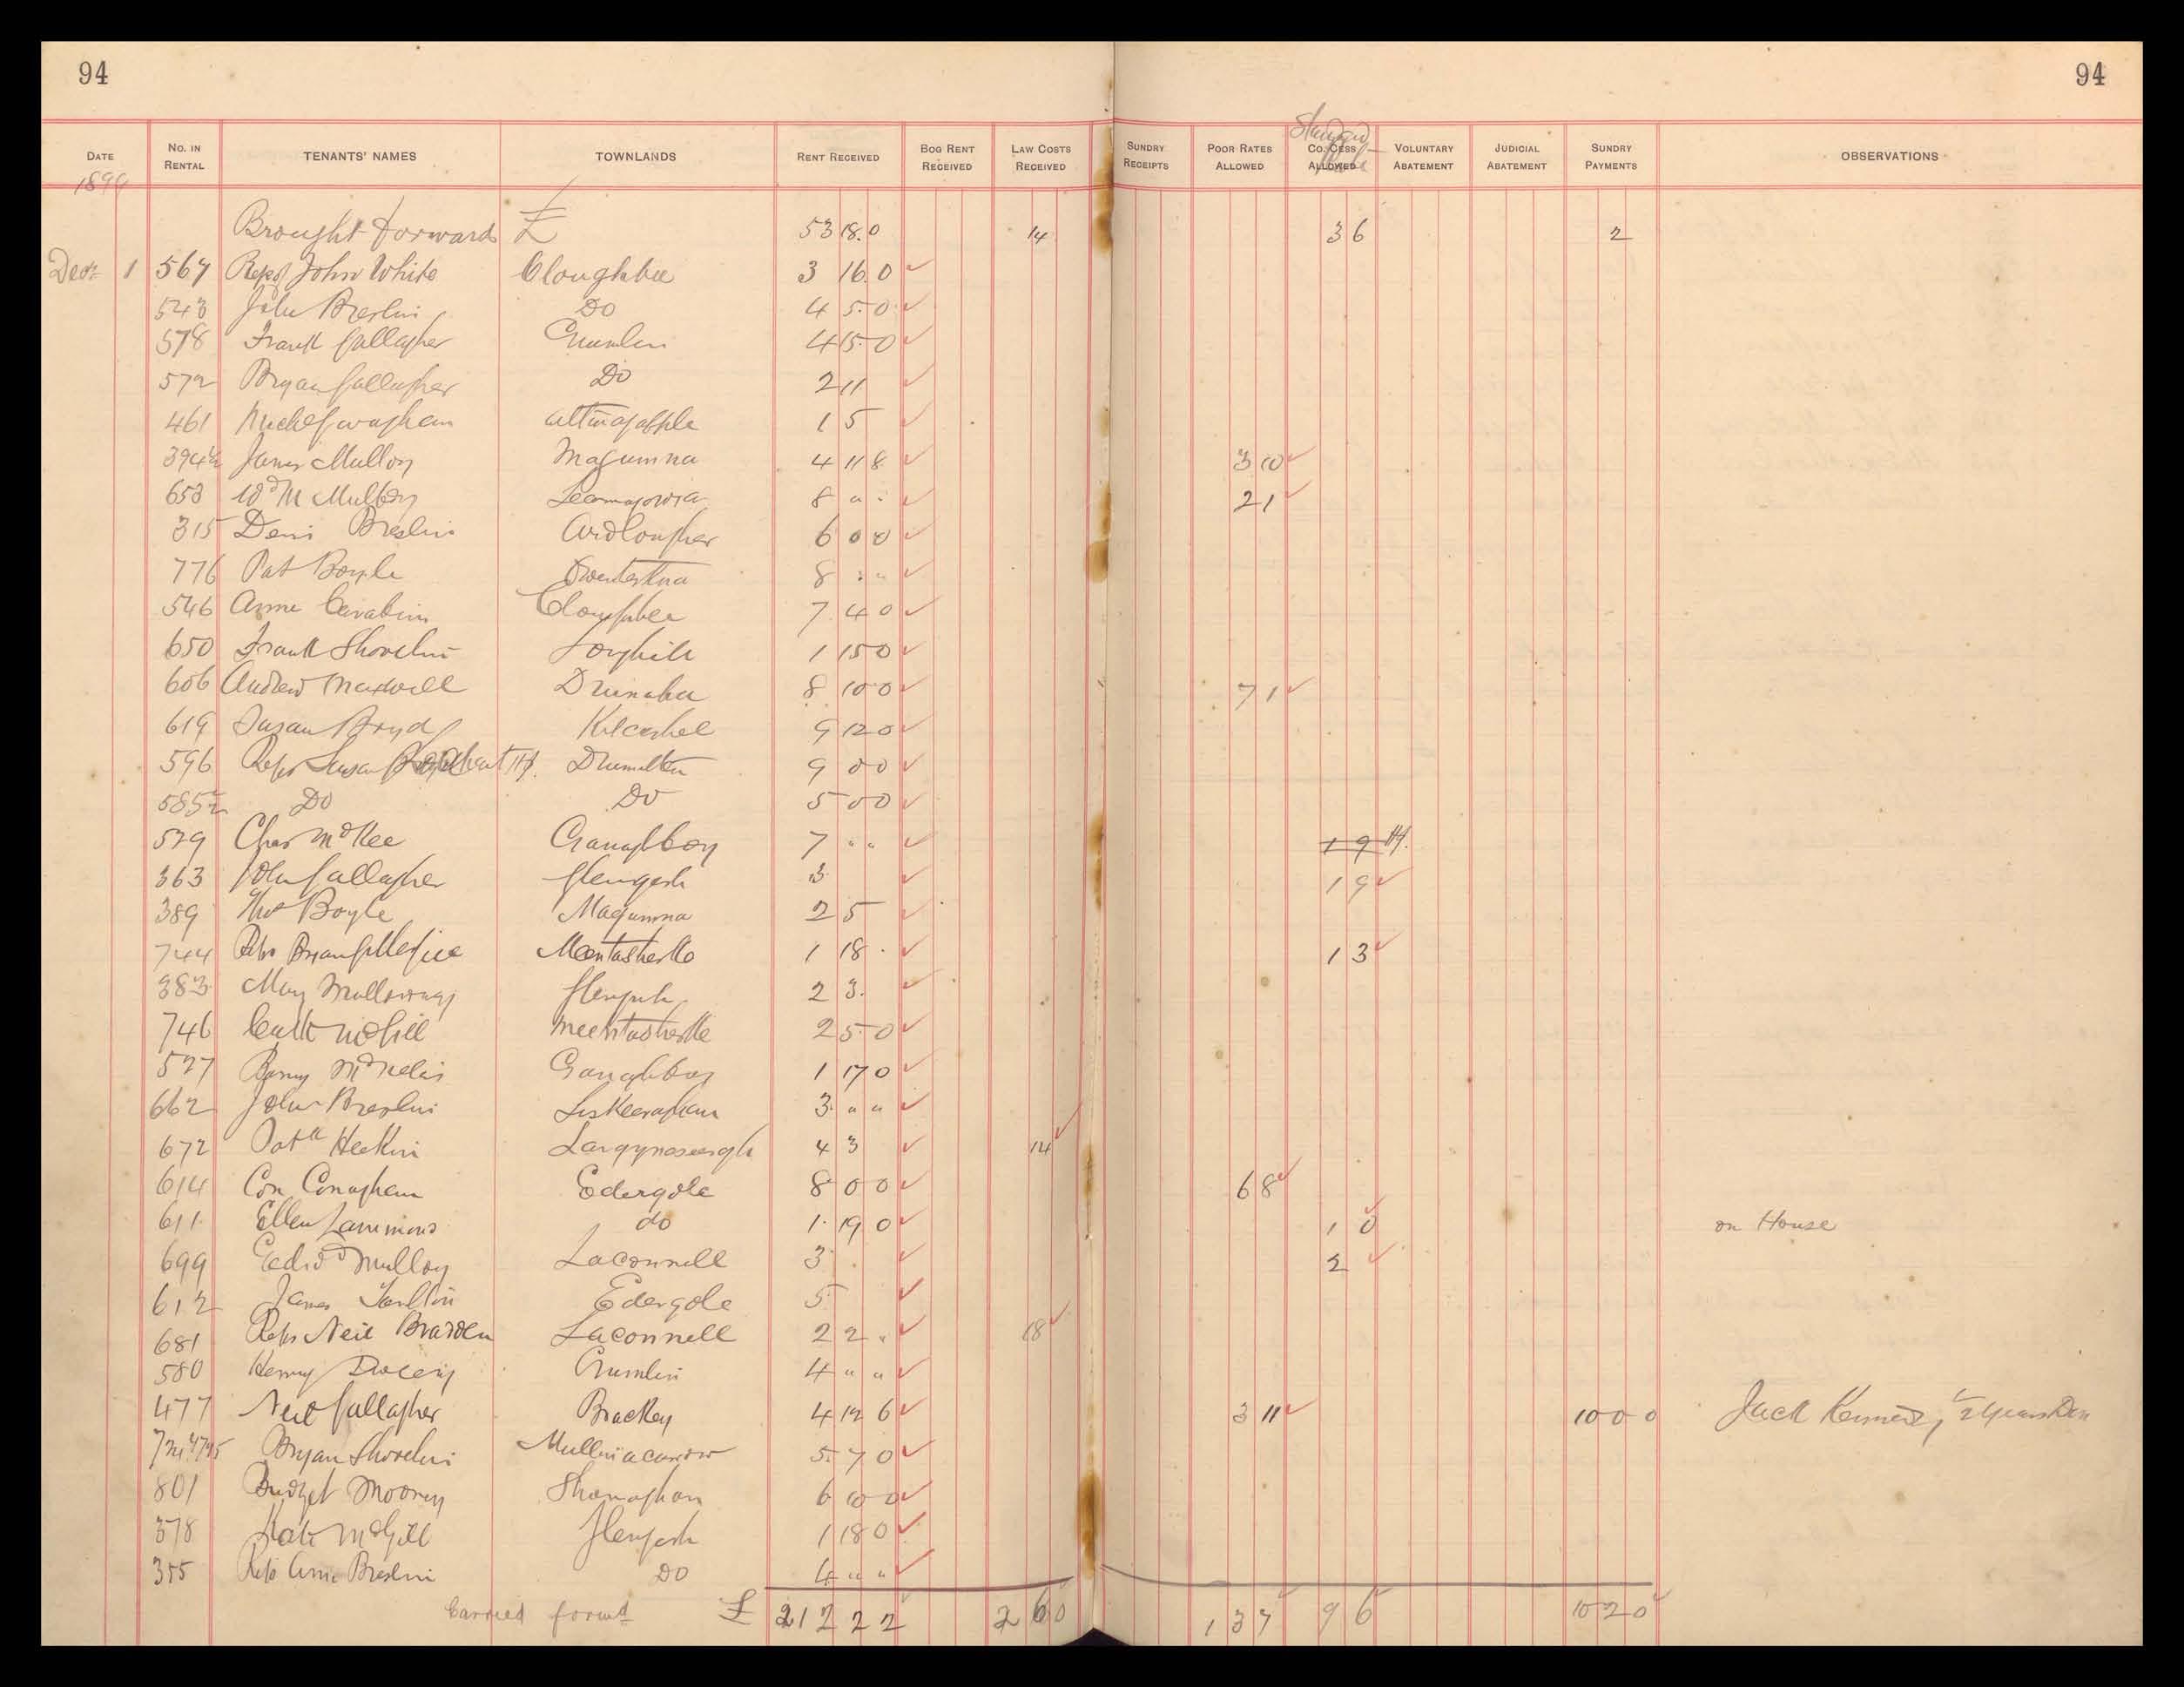 94 94
DATE No. IN RENTAL TENANTS' NAMES TOWNLANDS RENT RECEIVED BOG RENT RECEIVED LAW COSTS RECEIVED SUNDRY RECEIPTS POOR RATES ALLOWED CO. CESS ALLOWED VOLUNTARY ABATEMENT JUDICIAL ABATEMENT SUNDRY PAYMENTS OBSERVATIONS
Brought forwards £ 53 18. 0 14 3 6 2
Decr 1 567 Reps John White Cloughbee 3 16 0
543 John Breslin Do 4 5 0
578 Frank Gallagher Crumlin 4 15 0
572 Bryan Gallagher Do 2 11
461 1 5
394½ James Mulloy Magumna 4 11 8 3 10
653 Wd M Mulloy 8 " " 2 1
315 Denis Breslin Ardlougher 6 0 0
776 Pat Boyle 8 " "
546 Anne Cloughbee 7 4 0
650 Frank Shovelin Loughill 1 15 0
606 Andrew Maxwell Drumaha 8 10 0 7 1
619 Susan Boyd Kilcashel 9 12 0
596 Reps Susan 9 0 0
585½ Do Do 5 0 0
529 Chas McKee Ganaghboy 7 " " 1 9
363 John Gallagher Glengesh 3 1 9
389 Thos Boyle Magumna 2 5
744 Reps Bryan 1 18 1 3
383 Mary Glengesh 2 3
746 McGill 2 5 0
527 McNelis 1 17 0
662 John Breslin Liskeeraghan 3 " "
672 Patk Heekin Largynaseeragh 4 3 14
614 Con Conaghan Edergole 8 0 0 6 8
611 Ellen Lammons do 1 19 0 1 0 on House
699 Edwd Mulloy Laconnell 3 2
612 James Edergole 5
681 Reps Neil Laconnell 2 2 " 18
580 Henry Crumlin 4 " "
477 Neil Gallagher Brackey 4 12 6 3 11 10 0 0 Jack
Bryan Shovelin Mullinacarrow 5 7 0
801 Bridget Mooney Shanaghan 6 10 0
378 Kate McGill Glengesh 1 18 0
355 Reps Anne Breslin Do 4 " "
Carried forwd £ 212 2 2 2 6 0 1 3 7 9 6 10 2 0